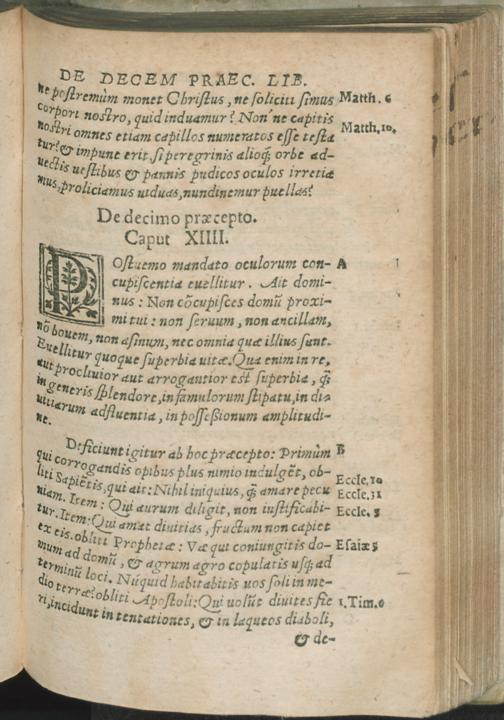 DE DECEM PRAEC. LIB.
ne postremùm monet Christus, ne soliciti simus Matth. 6
corpori nostro, quid induamur? Non'ne capitis
nostri omnes etiam capillos numeratos esse testa Matth. 10.
tur? & impune erit, si peregrinis alioq́; orbe ad-
uectis uestibus & pannis pudicos oculos irretia
mus, proliciamus uiduas, nundinemur puellas?
De decimo præcepto.
Caput XIIII.
POstremo mandato oculorum con- A
cupiscentia euellitur. Ait domi-
nus: Non cõcupisces domũ proxi-
mi tui: non seruum, non ancillam,
nõ bouem, non asinum, nec omnia quæ illius sunt.
Euellitur quoque superbia uitæ. Qua enim in re,
aut procliuior aut arrogantior est superbia, q̃
in generis splendore, in famulorum stipatu, in di-
uitiarum adfluentia, in possessionum amplitudi-
ne.
Deficiunt igitur ab hoc præcepto: Primùm B
qui corrogandis opibus plus nimio indulgẽt, ob-
liti Sapiẽtis, qui ait: Nihil iniquius, q̃ amare pecu Eccle. 10
niam. Item: Qui aurum diligit, non iustificabi- Eccle. 31
tur. Item: Qui amat diuitias, fructum non capiet Eccle. 5
ex eis. obliti Prophetæ: Væ qui coniungitis do- Esaiæ 5
mum ad domũ, & agrum agro copulatis usq; ad
terminũ loci. Nũquid habitabitis uos soli in me-
dio terræ? obliti Apostoli: Qui uolũt diuites fie 1. Tim. 6
ri, incidunt in tentationes, & in laqueos diaboli,
& de-